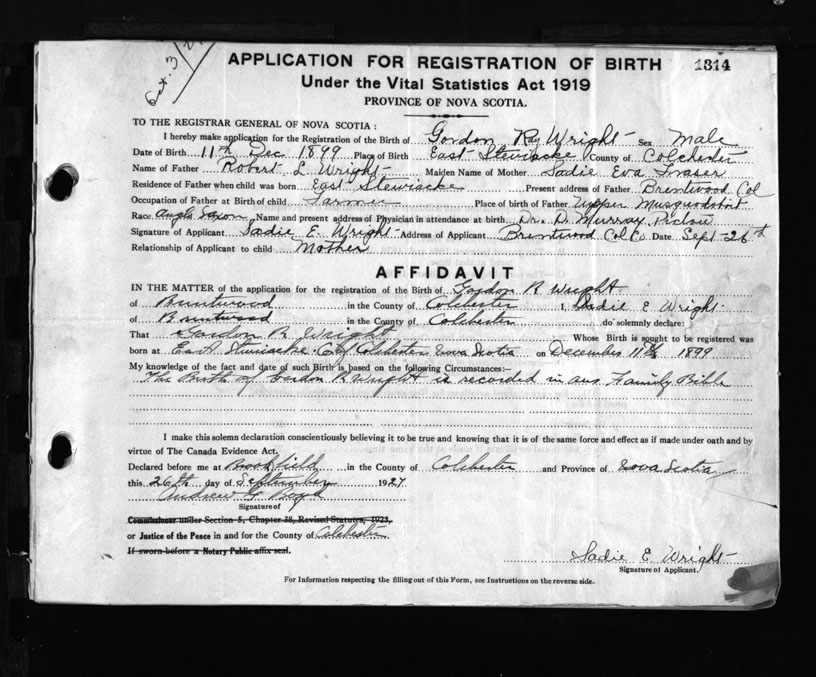 Oct. 3/27
APPLICATION FOR REGISTRATION OF BIRTH 1314
Under the Vital Statistics Act 1919
PROVINCE OF NOVA SCOTIA.
TO THE REGISTRAR GENERAL OF NOVA SCOTIA :
I hereby make application for the Registration of the Birth of Gordon Ray Wright Sex Male
Date of Birth 11th Dec 1899 Place of Birth East Stewiacke County of Colchester
Name of Father Robert L Wright Maiden Name of Mother Sadie Eva Fraser
Residence of Father when child was born East Stewiacke Present address of Father Brentwood Col
Occupation of Father at Birth of child Farmer Place of birth of Father Upper Musquodoboit
Race Anglo Saxon Name and present address of Physician in attendance at birth Dr. D. Murray Pictou
Signature of Applicant Sadie E Wright Address of Applicant Brentwood Col Co Date Sept 26th
Relationship of Applicant to child Mother
AFFIDAVIT
IN THE MATTER of the application for the registration of the Birth of Gordon R Wright
of Brentwood in the County of Colchester I, Sadie E Wright
of Brentwood in the County of Colchester do solemnly declare:
That Gordon R Wright Whose Birth is sought to be registered was
born at East Stewiacke Co of Colchester Nova Scotia on December 11th 1899
My knowledge of the fact and date of such Birth is based on the following Circumstances:—
The Birth of Gordon R Wright is recorded in our Family Bible
I make this solemn declaration conscientiously believing it to be true and knowing that it is of the same force and effect as if made under oath and by
virtue of The Canada Evidence Act.
Declared before me at Brookfield in the County of Colchester and Province of Nova Scotia
this 26th day of September 1927
Andrew G Boyd
Signature of
Commissioner under Section 5, Chapter 38, Revised Statutes, 1923,
or Justice of the Peace in and for the County of Colchester
If sworn before a Notary Public affix seal.
Sadie E Wright
Signature of Applicant.
For Information respecting the filling out of this Form, see Instructions on the reverse side.